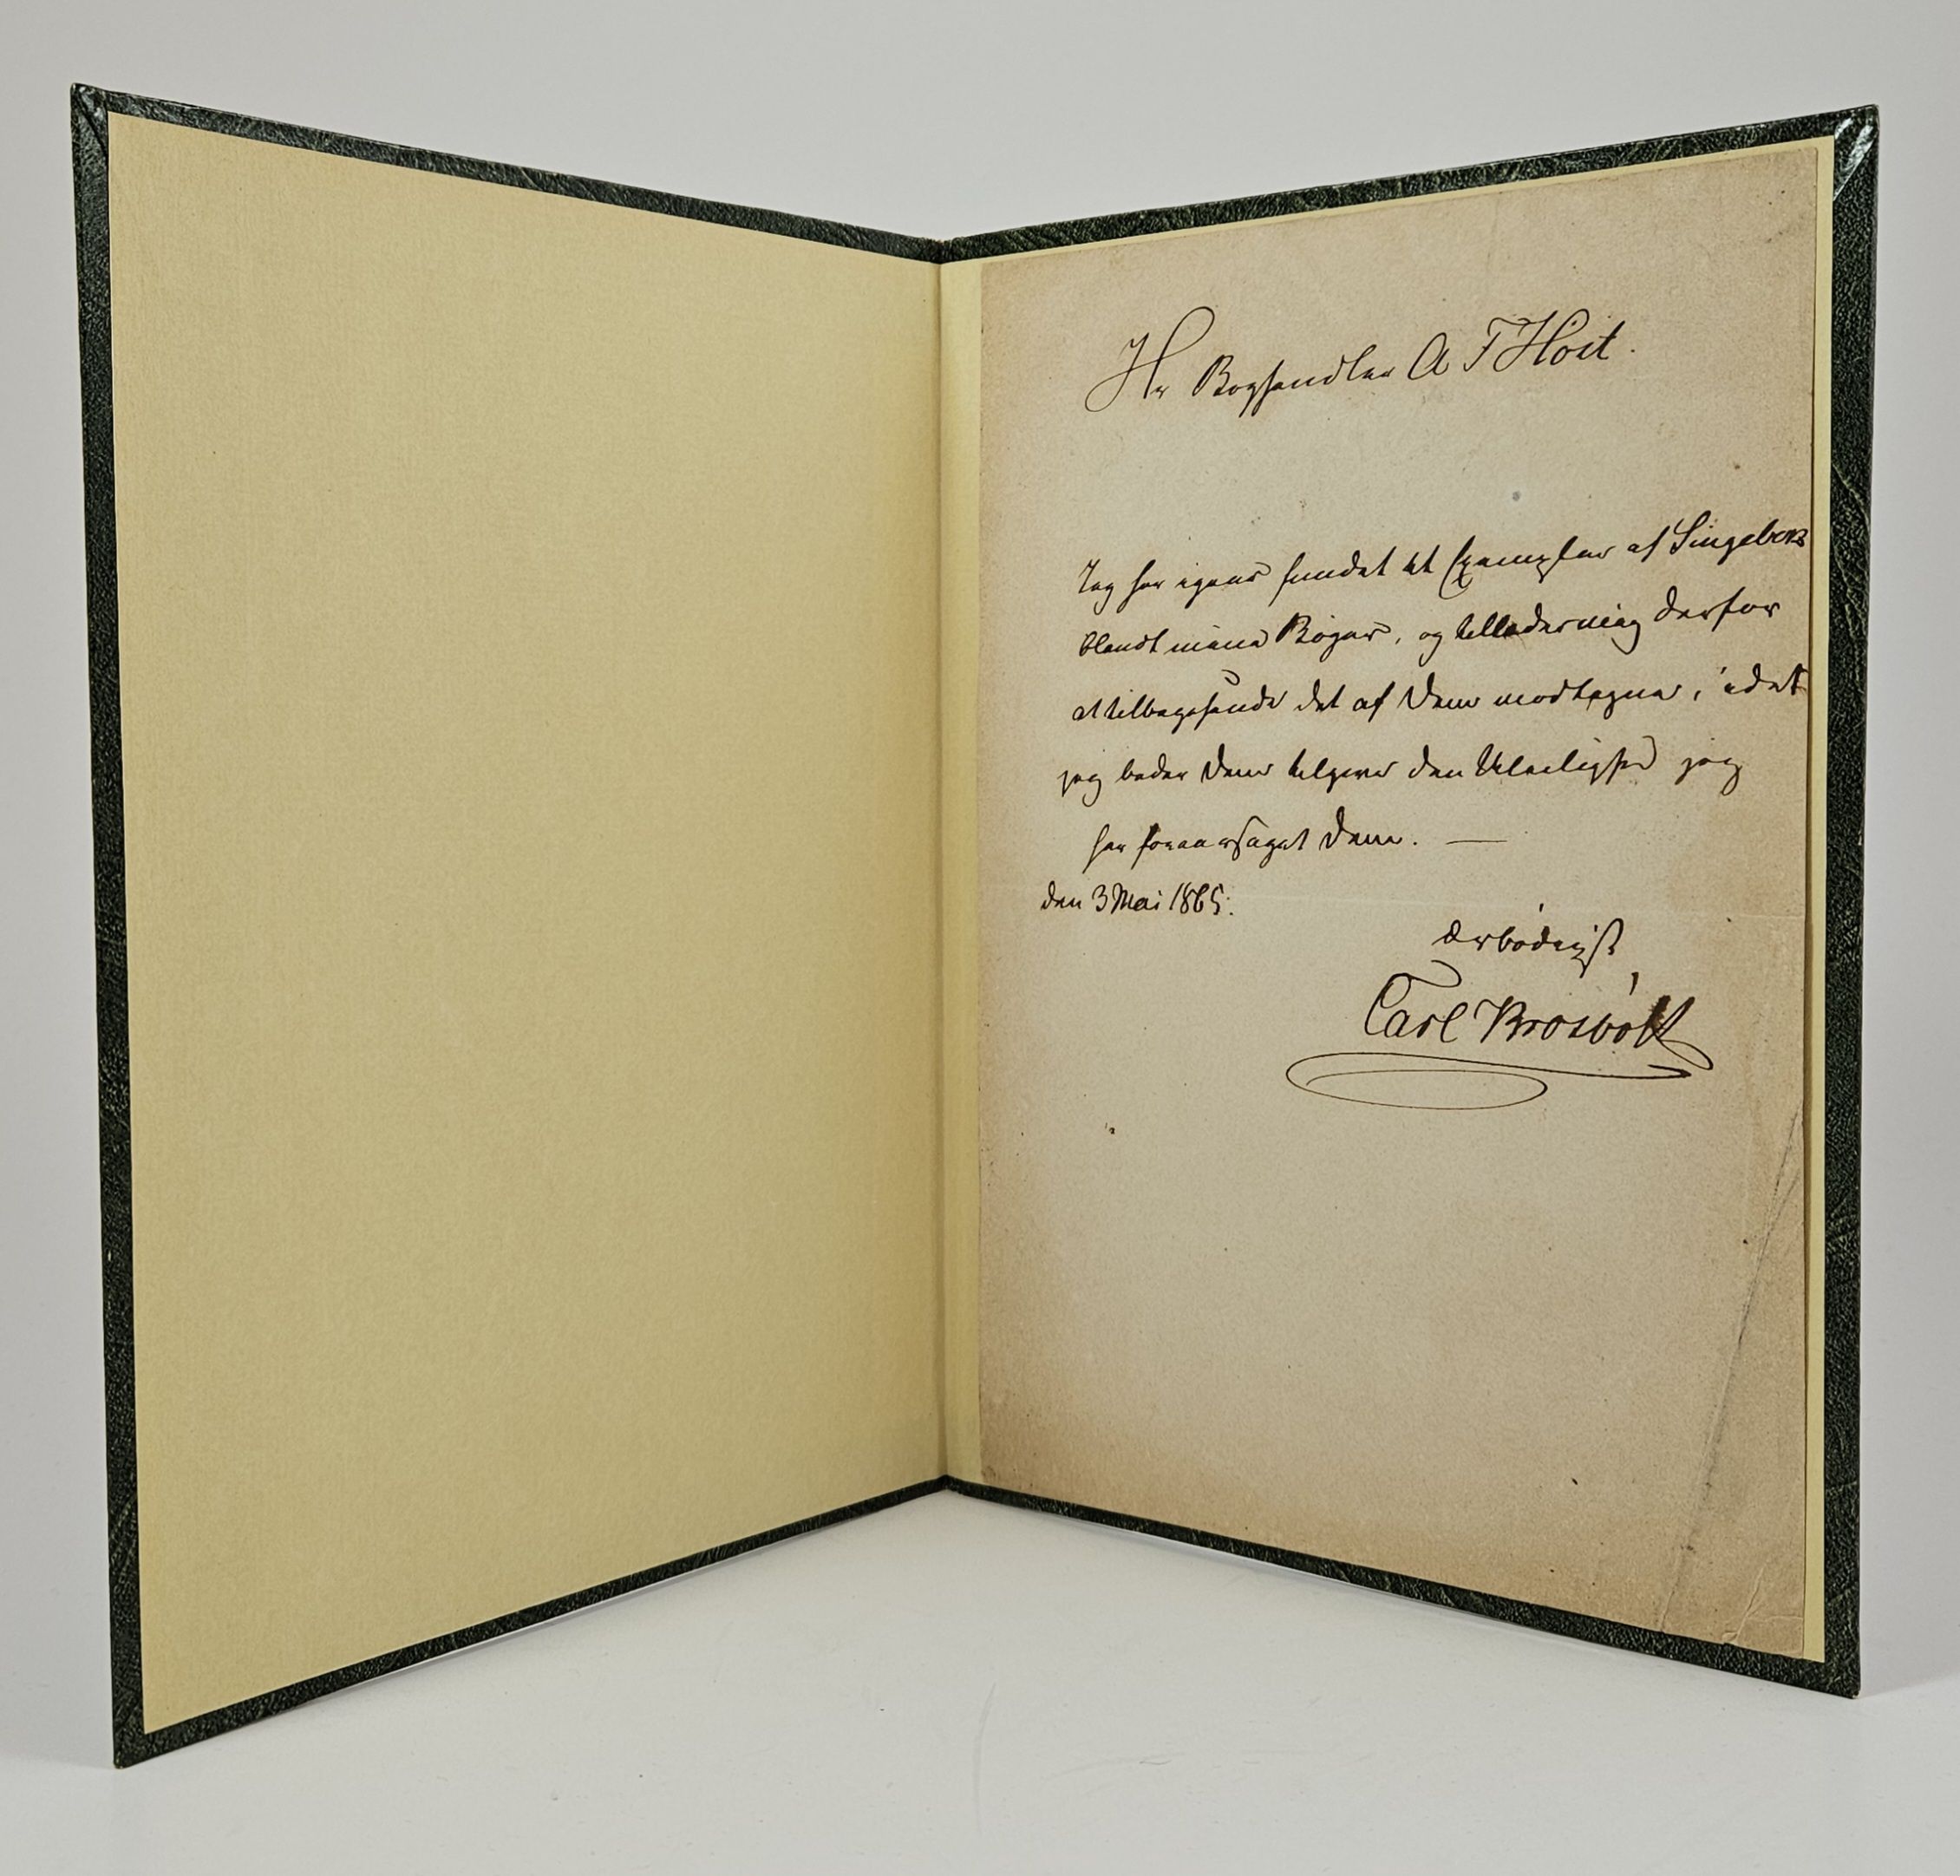 Hr Boghandler A F Høst.
Jeg har igjen fundet et Exemplar af
blandt mine Bøger, og tillader mig derfor
at tilbagesende det af Dem modtagne, idet
jeg beder Dem tilgive den Uleilighed jeg
har foraarsaget Dem. —
den 3 Mai 1865.
Ærbødigst
Carl Brosbøll